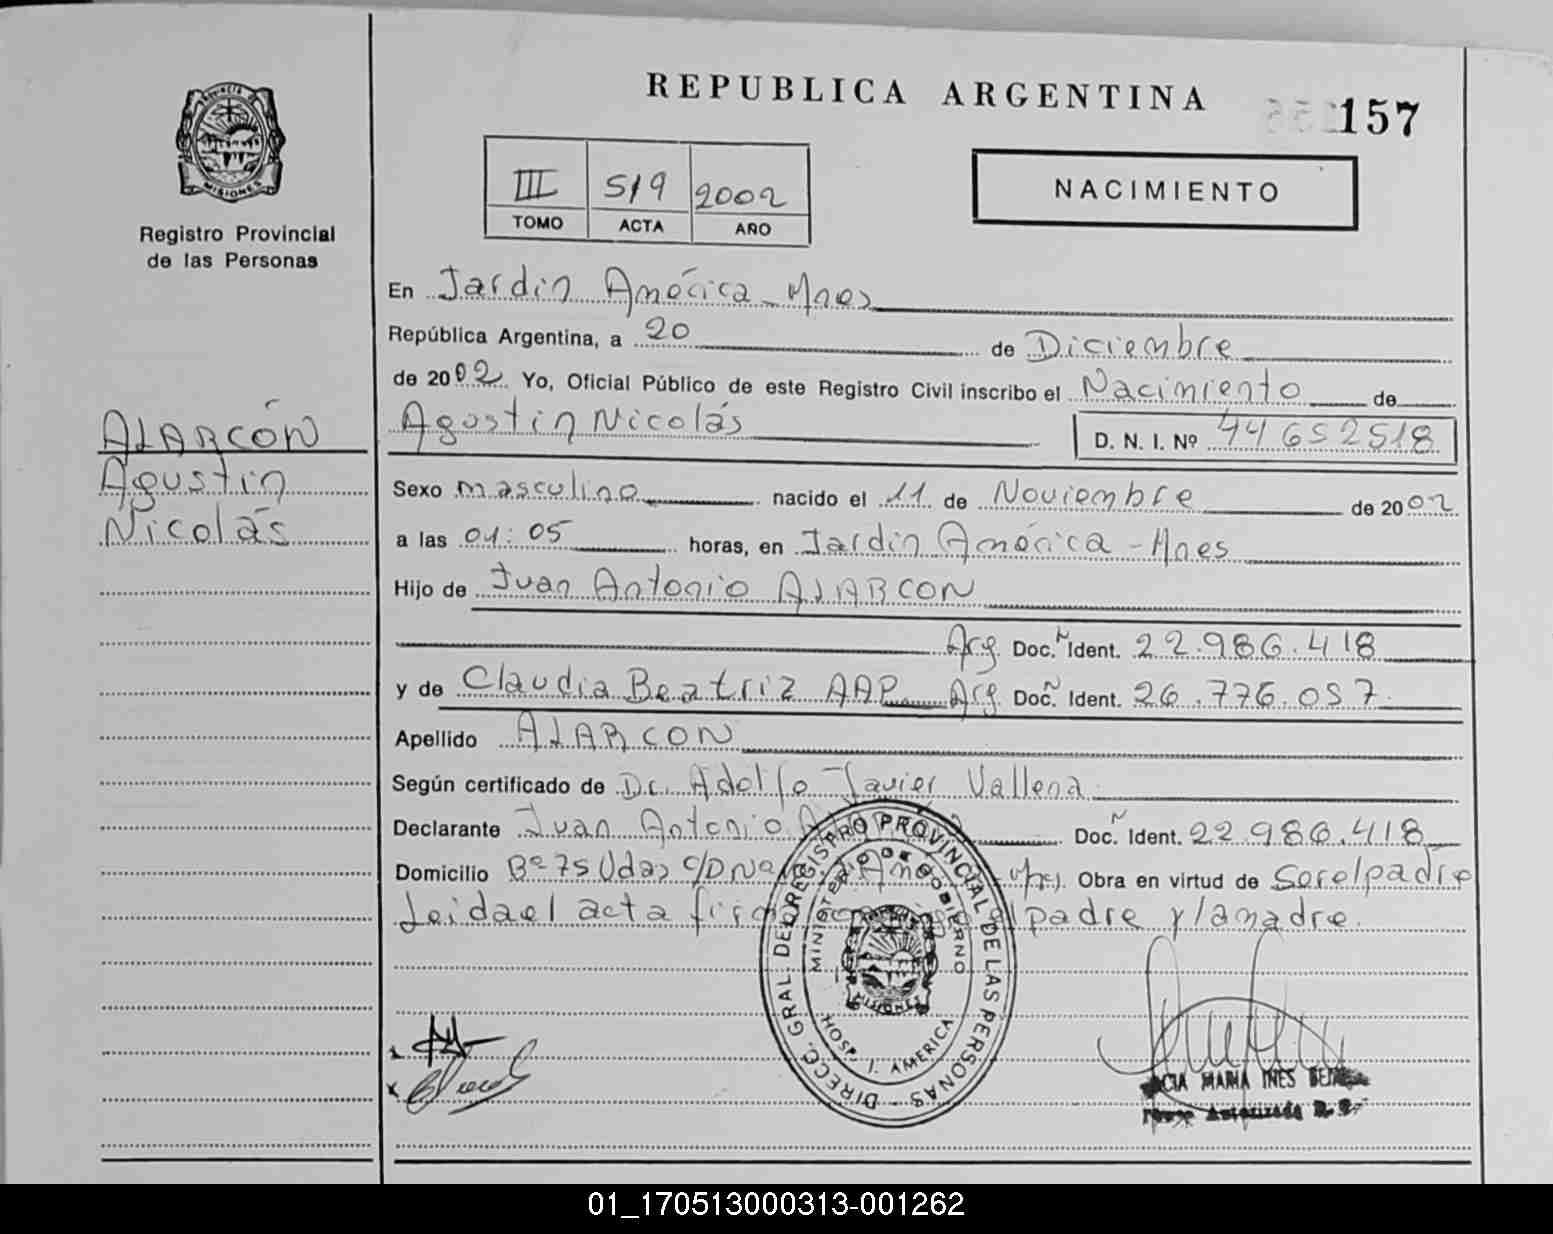 REPUBLICA ARGENTINA
157
PROVINCIA DE MISIONES
Registro Provincial
de las Personas
III 519 2002
TOMO ACTA AÑO
NACIMIENTO
En Jardin América - Mnes
República Argentina, a 20 de Diciembre
de 2002 Yo, Oficial Público de este Registro Civil inscribo el Nacimiento de
Agustin Nicolás D. N. I. Nº 44652518
ALARCÓN
Agustin
Nicolás
Sexo masculino nacido el 11 de Noviembre de 2002
a las 01:05 horas, en Jardin América - Mnes
Hijo de Juan Antonio ALARCON
Arg. Doc. N Ident. 22.986.418
y de Claudia Beatriz AAP Arg. Doc. N Ident. 26.776.057
Apellido ALARCON
Según certificado de Dr. Adolfo Javier Vallena
Declarante Juan Antonio Doc. N Ident. 22.986.418
Domicilio Bº 75 Vdas Obra en virtud de Ser el padre
Leida el acta el padre y la madre.
DIRECC. GRAL. DEL REGISTRO PROVINCIAL DE LAS PERSONAS
MINISTERIO DE GOBIERNO
MISIONES
HOSP. J. AMERICA
MARIA INES
Autorizada
01_170513000313-001262